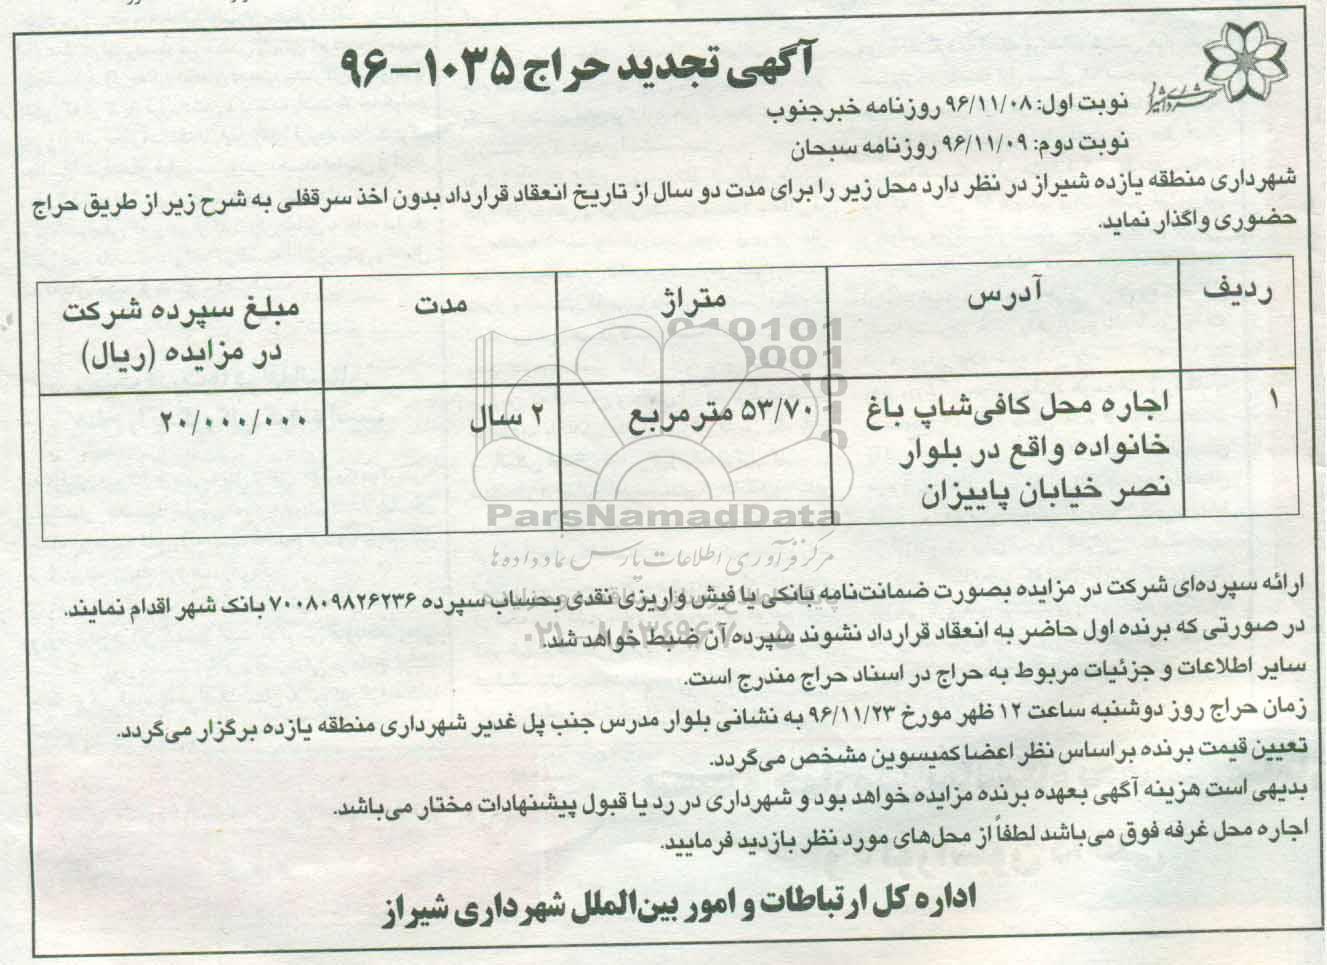 آگهی تجدید حراج ۱۰۳۵-۹۶
شهرداری شیراز
نوبت اول: ۹۶/۱۱/۰۸ روزنامه خبرجنوب
نوبت دوم: ۹۶/۱۱/۰۹ روزنامه سبحان
شهرداری منطقه یازده شیراز در نظر دارد محل زیر را برای مدت دو سال از تاریخ انعقاد قرارداد بدون اخذ سرقفلی به شرح زیر از طریق حراج
حضوری واگذار نماید.
ردیف آدرس متراژ مدت مبلغ سپرده شرکت
در مزایده (ریال)
۱ اجاره محل کافی‌شاپ باغ ۵۳/۷۰ مترمربع ۲ سال ۲۰/۰۰۰/۰۰۰
خانواده واقع در بلوار
نصر خیابان پاییزان
ParsNamadData
مرکز فرآوری اطلاعات پارس نماد داده‌ها
ارائه سپرده‌ای شرکت در مزایده بصورت ضمانت‌نامه بانکی یا فیش واریزی نقدی بحساب سپرده ۷۰۰۸۰۹۸۲۶۲۳۶ بانک شهر اقدام نمایند.
در صورتی که برنده اول حاضر به انعقاد قرارداد نشوند سپرده آن ضبط خواهد شد.
سایر اطلاعات و جزئیات مربوط به حراج در اسناد حراج مندرج است.
زمان حراج روز دوشنبه ساعت ۱۲ ظهر مورخ ۹۶/۱۱/۲۳ به نشانی بلوار مدرس جنب پل غدیر شهرداری منطقه یازده برگزار می‌گردد.
تعیین قیمت برنده براساس نظر اعضا کمیسوین مشخص می‌گردد.
بدیهی است هزینه آگهی بعهده برنده مزایده خواهد بود و شهرداری در رد یا قبول پیشنهادات مختار می‌باشد.
اجاره محل غرفه فوق می‌باشد لطفاً از محل‌های مورد نظر بازدید فرمایید.
اداره کل ارتباطات و امور بین‌الملل شهرداری شیراز